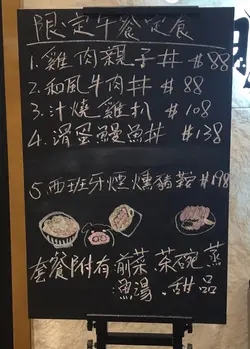 限定午餐定食
1.雞肉親子丼 $88
2.和風牛肉丼 $88
3.汁燒雞扒 $108
4.滑蛋鰻魚丼 $138
5.西班牙煙燻豬鞍 $198
套餐附有 前菜 茶碗蒸
漁湯 . 甜品